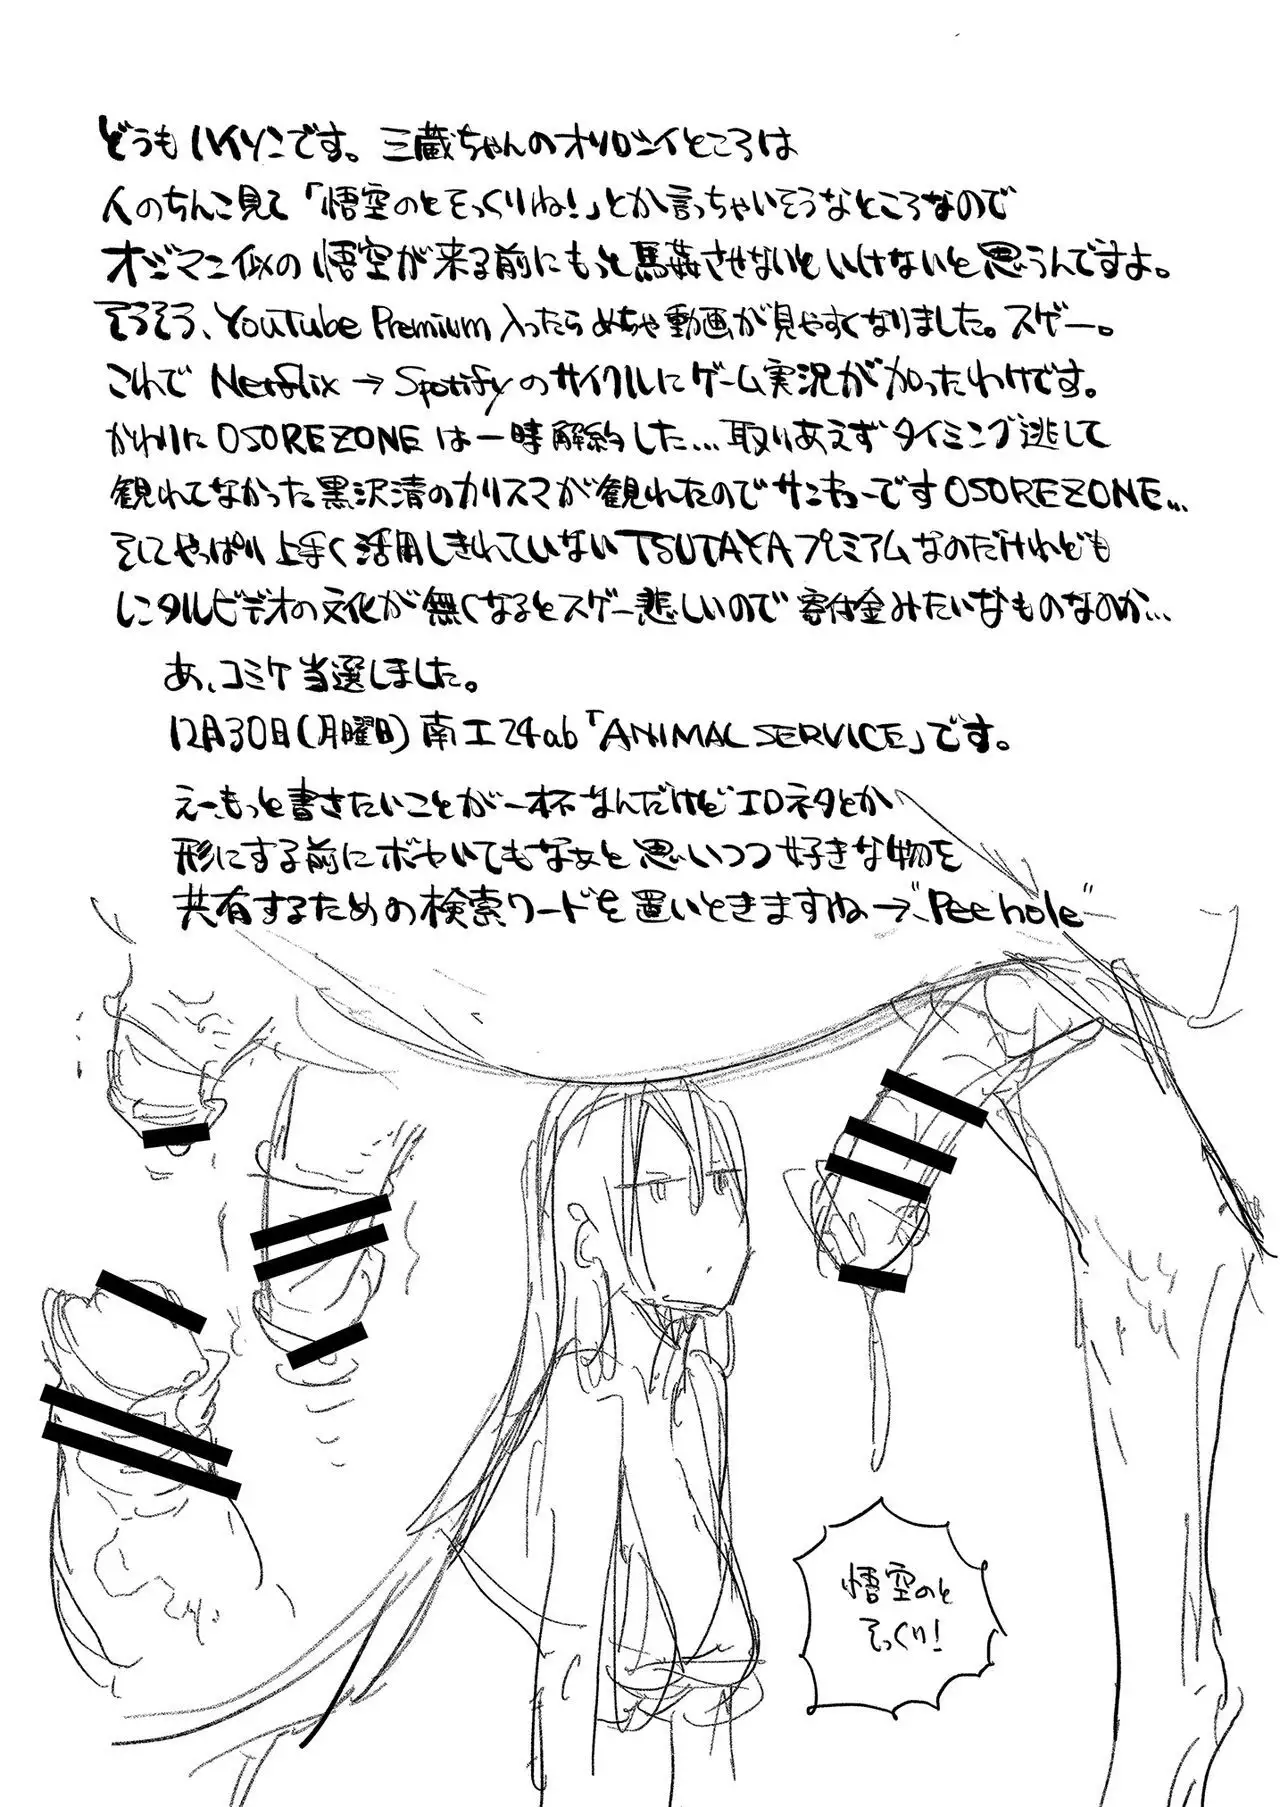 どうもハイソンです。三蔵ちゃんのオリロンイところは
人のちんこ見て「悟空のとそっくりね!」とか言っちゃいそうなところなので
オジマン似の悟空が来る前にもっと馬姦させないといけないと思うんですよ。
そうそう、YouTube Premium入ったらめちゃ動画が見やすくなりました。スゲー。
これで Netflix→Spotifyのサイクルにゲーム実況が加ったわけです。
かわりにOSOREZONEは一時解約した…取りあえずタイミング逃して
観れてなかった黒沢清のカリスマが観れたのでサンキューですOSOREZONE…
そしてやっぱり上手く活用しきれていないTSUTAYAプレミアムなのだけれども
レンタルビデオの文化が無くなるとスゲー悲しいので寄付金みたいなものなのか…
あ、コミケ当選しました。
12月30日(月曜日)南エ24ab「ANIMAL SERVICE」です。
えーもっと書きたいことが一杯なんだけどエロネタとか
形にする前にボヤいてもなぁと思いつつ好きな物を
共有するための検索ワードを置いときますね→"Pee hole"
悟空のと
そっくり!